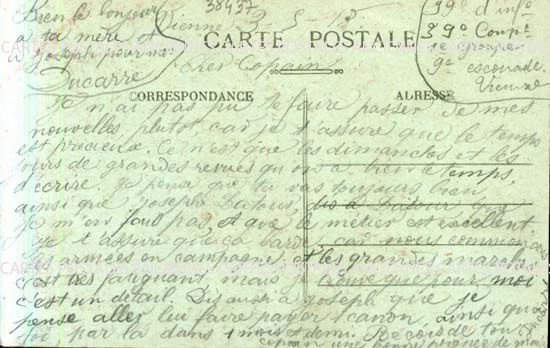 Bien le bonjour
à ta mère et
à Joseph pour moi
Ducarre
38437
Vienne 2-5-15
39e d'inf
39e Compie
9e escouade
Vienne
CARTE POSTALE
Cher Copain
CORRESPONDANCE
ADRESSE
Je n'ai pas pu te faire passer de mes
nouvelles plutot, car je t'assure que le temps
est precieux. Ce n'est que les dimanches et les
jours de grandes revues qu'on a bien le temps,
d'écrire. Je pense que tu vas toujours bien
ainsi que, Joseph
Je m'en fout pas, et que le métier est excellent.
Je t'assure que ça barde, car nous commençons
les armées en campagne. et les grandes marches
c'est très fatiguant, mais je trouve que pour moi
c'est un détail. Dis aussi a Joseph que je
pense aller lui faire payer 1 canon, ainsi qu'a
toi par la dans 1 mois et demi. Reçois de ton
copain une bonne poignée de main